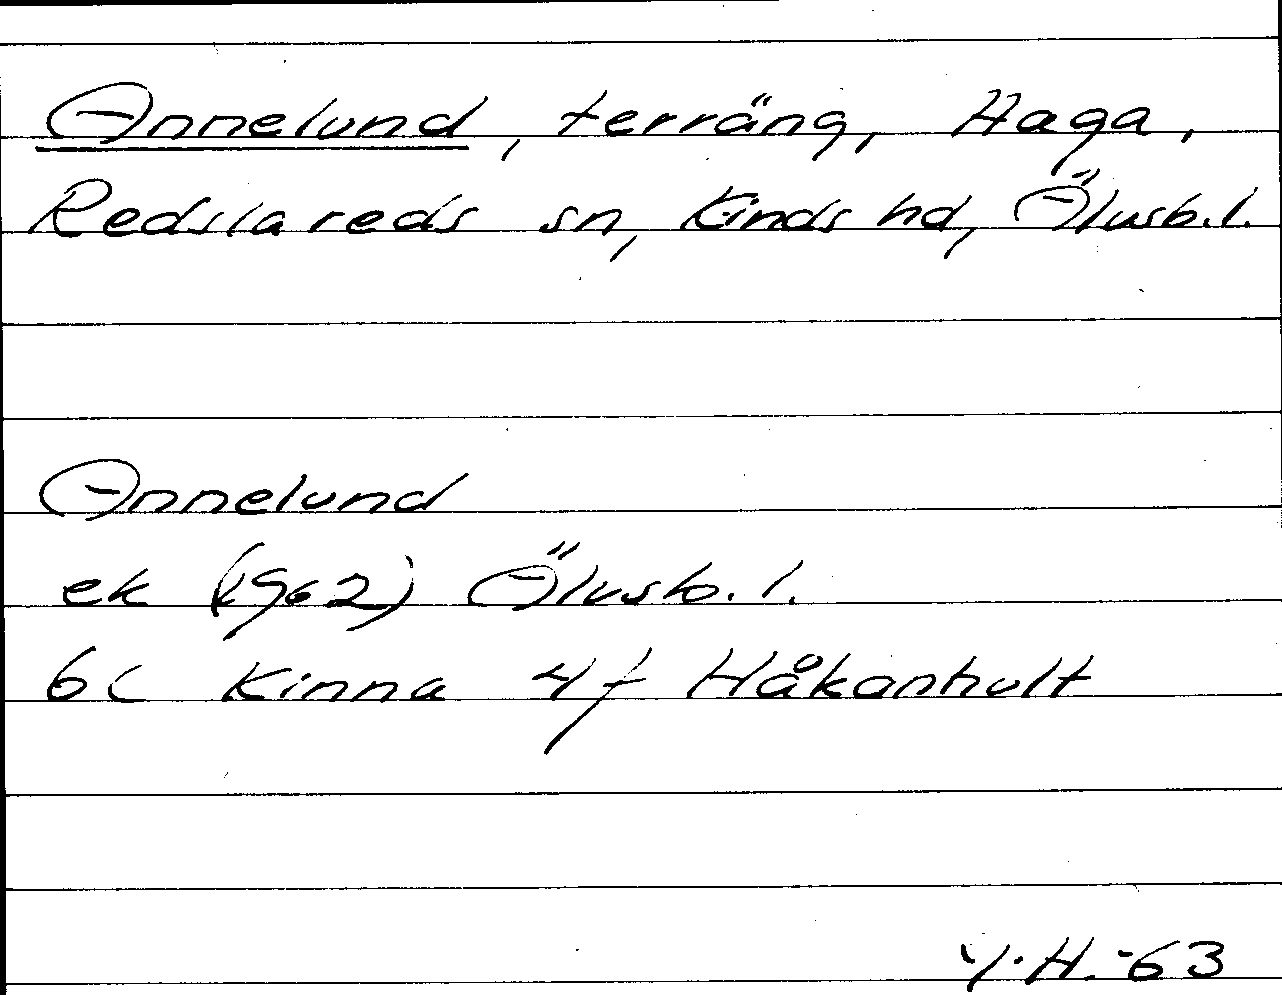 Annelund, terräng, Haga,
Redslareds sn, Kinds hd, Älvsb.l.
Annelund
ek (1962) Älvsb. l.
6C Kinna 4f Håkanhult
Y.H.-63